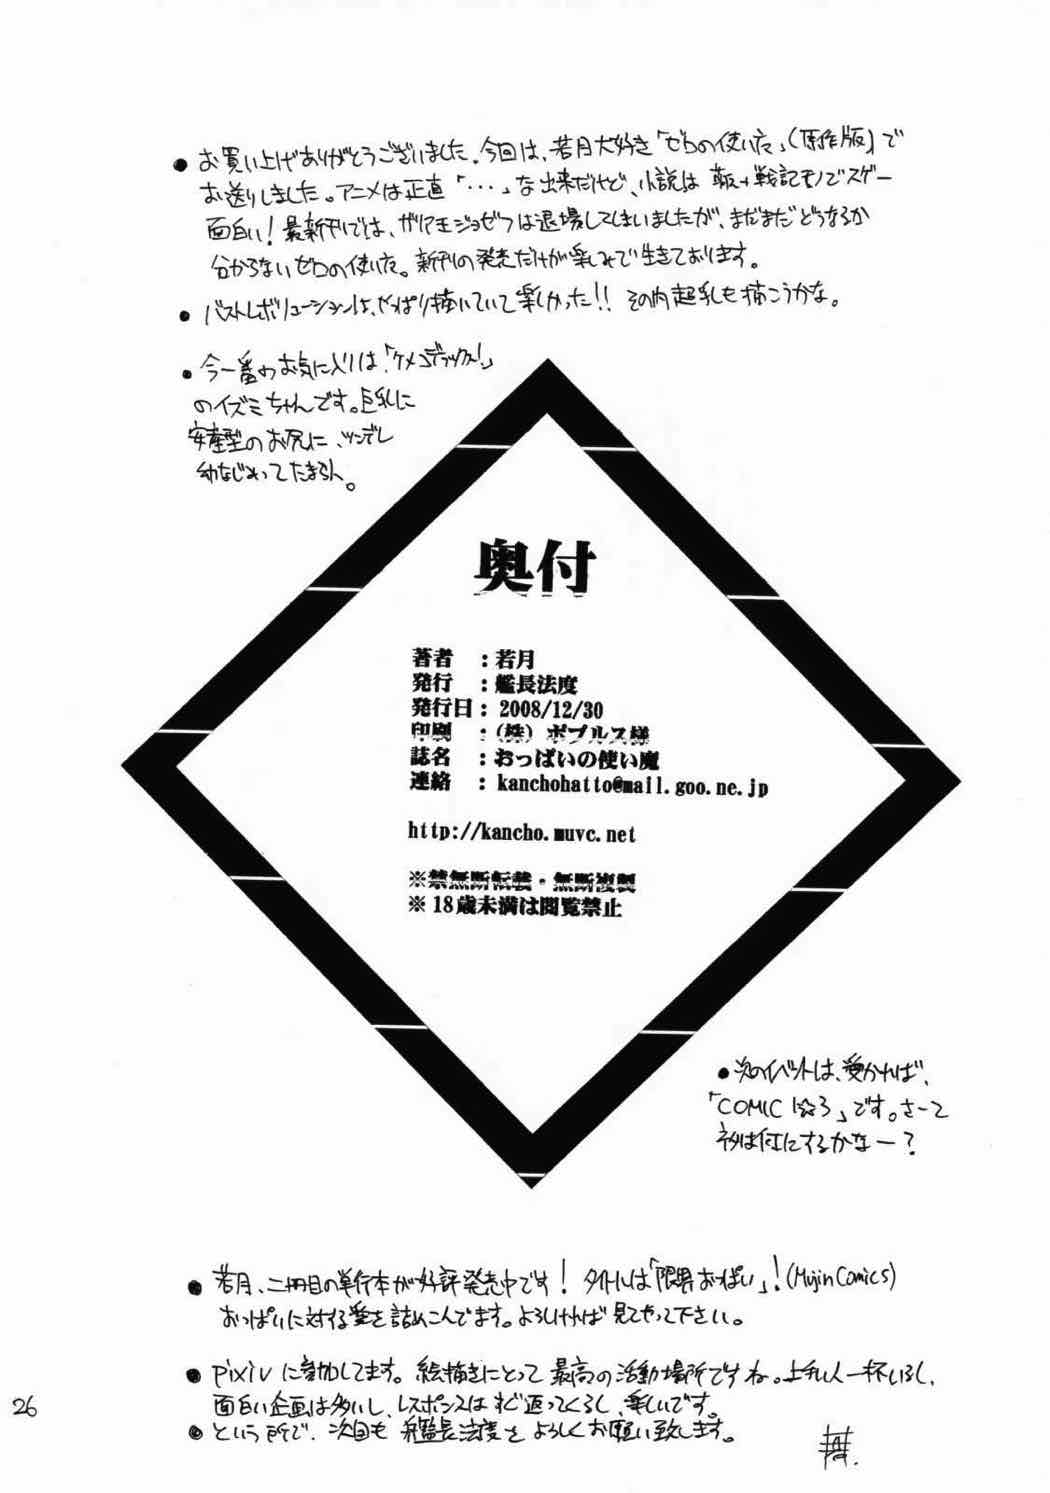 ●お買い上げありがとうございました。今回は、若月大好き「ゼロの使い魔」(原作版)で
お送りしました。アニメは正直「・・・」な出来だけど、小説は 戦記モノでスゲー
面白い！最新刊では、ガリア王ジョゼフは退場してしまいましたが、まだまだどうなるか
分からないゼロの使い魔。新刊の発売だけが楽しみで生きております。
●バストレボリューションは、やっぱり描いていて楽しかった!! その内超乳も描こうかな。
●今一番のお気に入りは「ケメコデラックス!」
のイズミちゃんです。巨乳に
安産型のお尻に、ツンデレ
幼なじみってたまらん。
奥付
著者　：若月
発行　：艦長法度
発行日：2008/12/30
印刷　：(株) ポプルス様
誌名　：おっぱいの使い魔
連絡　：kanchohatto@mail.goo.ne.jp
http://kancho.muvc.net
※禁無断転載・無断複製
※18歳未満は閲覧禁止
●次のイベントは、受かれば、
「COMIC1☆3」です。さーて
ネタは何にするかなー？
●若月、二冊目の単行本が好評発売中です！ タイトルは「限界おっぱい」！(Mujin Comics)
おっぱいに対する愛を詰めこんでます。よろしければ見てやって下さい。
●pixivに参加してます。絵描きにとって最高の活動場所ですね。上手い人一杯いるし、
面白い企画は多いし、レスポンスはすぐ返ってくるし、楽しいです。
●という所で、次回も 艦長法度をよろしくお願い致します。
26